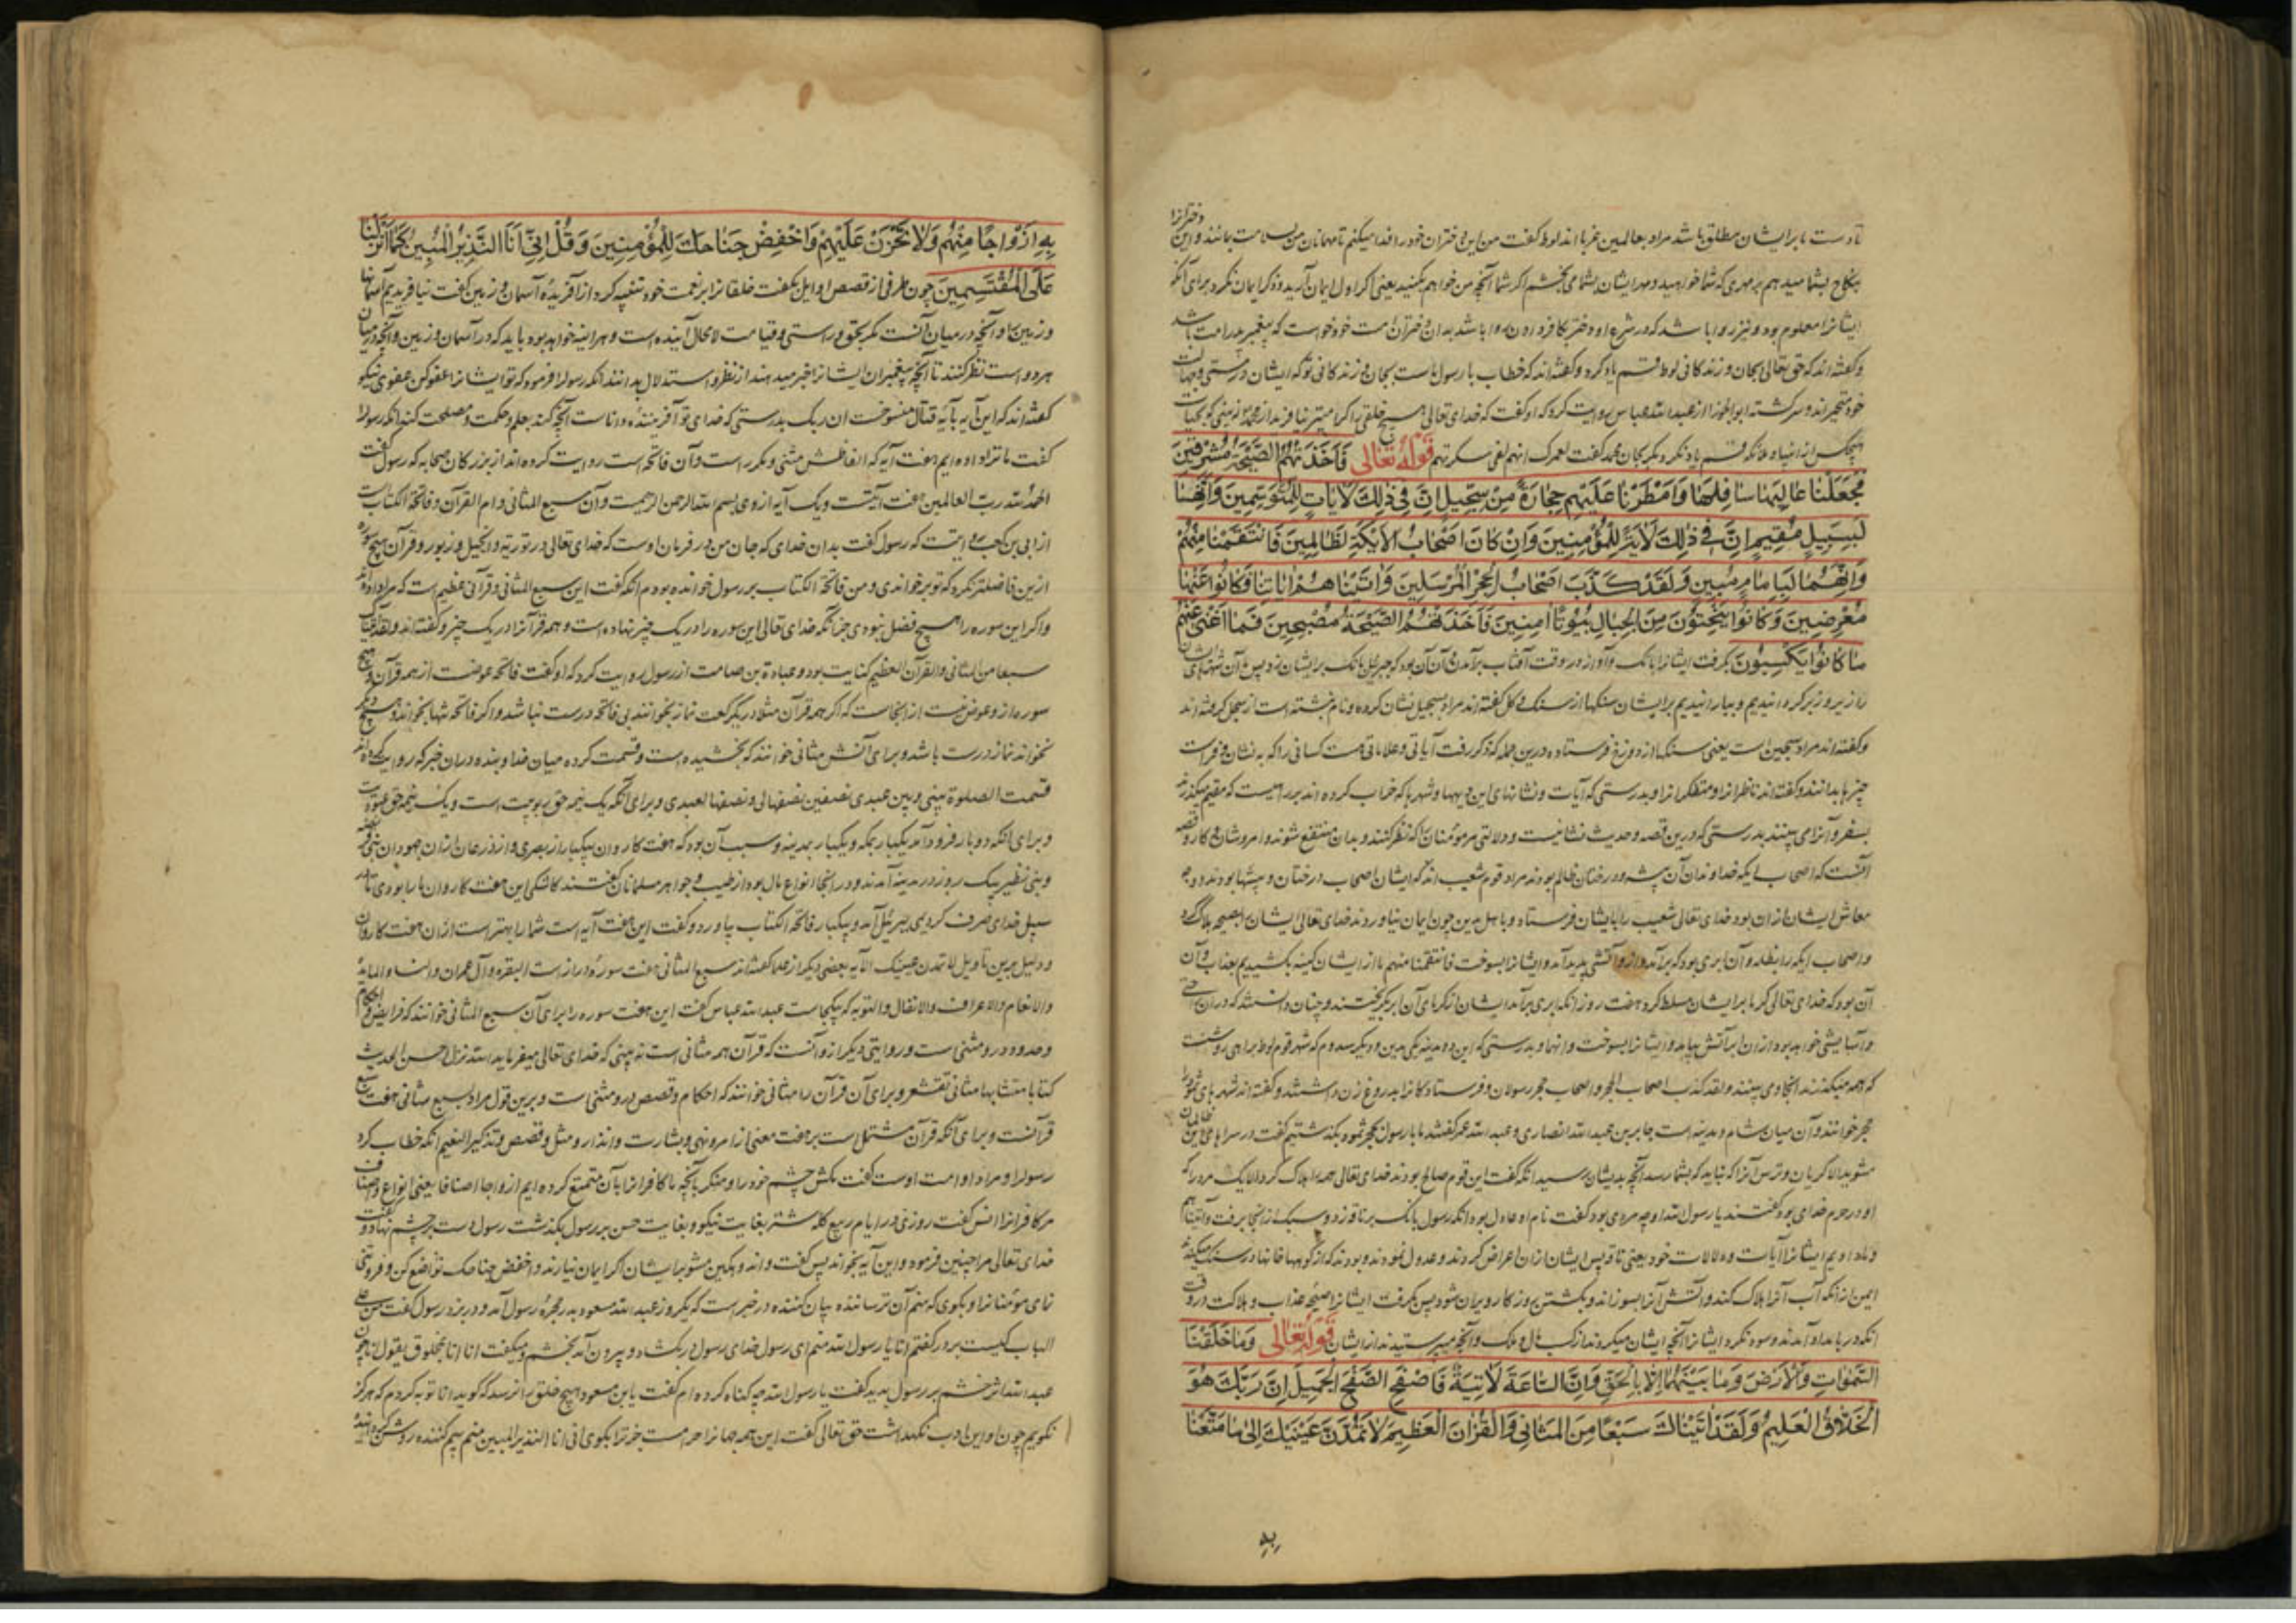 دختر انرا
تا دست ما بر ایشان مطلق باشد مراد بعالمین غربا اند لوط گفت من این دختران خود را فدا میکنم تا مهمانان من بسلامت بمانند و این
بنکاح بشما میدهم بر مهری که شما خواهید و مهر ایشان بشما می بخشم اگر شما آنچه من خواهم بکنید یعنی اگر اول ایمان آرید و ذکر ایمان نکرد برای آنکه
ایشانرا معلوم بود و نیز روا باشد که در شرع او دختر بکافر دادن روا باشد بدان دختران امت خود خواست که پیغمبر پدر امت باشد
و گفته اند که حق تعالی بجان و زندگانی لوط قسم یاد کرد و گفته اند که خطاب با رسول ماست بجان و زندگانی تو که ایشان در مستی و جهالت
خود متحیر اند و سرگشته ابوالجوزا از عبدالله عباس روایت کرد که او گفت که خدای تعالی هیچ خلقی را گرامیتر نیافرید از محمد نه بینی که بحیات
هیچکس از انبیا و ملائکه قسم یاد نکرد مگر بجان محمد گفت لعمرک انهم لفی سکرتهم قوله تعالی فَاَخَذَتْهُمُ الصَّیْحَةُ مُشْرِقینَ
فَجَعَلْنا عالِیَها سافِلَها وَاَمْطَرْنا عَلَیْهِم حِجارَةً مِنْ سِجّیلٍ اِنَّ فی ذلِکَ لَآیاتٍ لِلْمُتَوَسِّمینَ وَاِنَّها
لَبِسَبیلٍ مُقیمٍ اِنَّ فی ذلِکَ لَآیَةً لِلْمُؤْمِنینَ وَاِنْ کانَ اَصْحابُ الْاَیْکَةِ لَظالِمینَ فَانْتَقَمْنا مِنْهُمْ
وَاِنَّهُما لَبِاِمامٍ مُبینٍ وَلَقَدْ کَذَّبَ اَصْحابُ الْحِجْرِ الْمُرْسَلینَ وَآتَیْناهُمْ آیاتِنا فَکانُوا عَنْها
مُعْرِضینَ وَکانُوا یَنْحِتُونَ مِنَ الْجِبالِ بُیُوتًا آمِنینَ فَاَخَذَتْهُمُ الصَّیْحَةُ مُصْبِحینَ فَما اَغْنی عَنْهُمْ
ما کانُوا یَکْسِبُونَ بگرفت ایشانرا بانک و آواز در وقت آفتاب برآمدن و آن آن بود که جبرئیل بانک بر ایشان زد پس آن شهرهای ایشان
را زیر و زبر گردانیدیم و ببارانیدیم بر ایشان سنگها از سنگ و گل گفته اند مراد بسجیل نشان کرده و نام نبشته است از سجل گرفته اند
و گفته اند مراد سجین است یعنی سنگها از دوزخ فرستاده درین جمله که ذکر رفت آیاتی و علاماتی هست کسانی را که به نشان و فراست
چیزها بدانند و گفته اند ناظرانرا و متفکرانرا و بدرستی که آیات و نشانهای این دیهها و شهرها که خراب کرده اند بر راهیست که مقیم میگذرند
بسفر و آنرا می بینند بدرستی که درین قصه و حدیث نشانیست و دلالتی مر مؤمنانرا که نظر کنند و بدان منتفع شوند و امر و شان و کار و قصه
آنست که اصحاب ایکه خداوندان آن بیشه و درختان ظالم بودند مراد قوم شعیب اند که ایشان اصحاب درختان و بیشها بودند و وجه
معاش ایشان ازان بود خدای تعالی شعیب را بایشان فرستاد و باهل مدین چون ایمان نیاوردند خدای تعالی ایشان را بصیحه هلاک کرد
و اصحاب ایکه را بظله و آن ابری بود که برآمد و ازو آتشی پدید آمد و ایشانرا بسوخت فانتقمنا منهم ما از ایشان کینه بکشیدیم بعذاب و آن
آن بود که خدای تعالی گرما بر ایشان مسلط کرد هفت روز آنکه ابری برآمد ایشان از گرمای آن ابر بگریختند و چنان دانستند که در آن
و آسایشی خواهد بود ازان ابر آتش بیامد و ایشانرا بسوخت و انهما و بدرستی که این دو مدینه یکی مدین و دیگر سدوم که شهر قوم لوط براهی روشنست
که همه میگذرند آنجا و می بینند و لقد کذب اصحاب الحجر و اصحاب حجر رسولان و فرستادگانرا بدروغ زن داشتند و گفته اند شهرهای ثمود را
حجر خوانند و آن میان شام و مدینه است جابر بن عبدالله انصاری و عبدالله عمر گفتند ما با رسول بحجر ثمود بگذشتیم گفت در سراهای این ظالمان
مشوید الا گریان و ترسان که نباید که بشما رسد آنچه بدیشان رسید آنکه گفت این قوم صالح بودند خدای تعالی همه را هلاک کرد الا یک مرد را که
او در حرم خدای بود گفتند یا رسول الله او چه مردی بود گفت نام او بود آنکه رسول بانک بر ناقه زد و سبک از آنجا برفت و آتیناهم
و ما دادیم ایشانرا آیات و دلالات خود یعنی ناقه پس ایشان ازان اعراض کردند و عدول نمودند و بودند که از کوهها خانها در سنک میکندند
ایمن از آنکه آب آنرا هلاک کند و آتش آنرا بسوزاند و بگشتن روزگار ویران شود پس بگرفت ایشانرا صیحه عذاب و هلاکت در وقت
آنکه در بامداد آمدند و سود نکرد ایشانرا آنچه ایشان میکردند از کسب مال و ملک و آنچه میپرستیدند از ایشان قوله تعالی وَما خَلَقْنَا
السَّمواتِ وَالْاَرْضَ وَما بَیْنَهُما اِلّا بِالْحَقِّ وَاِنَّ السّاعَةَ لَآتِیَةٌ فَاصْفَحِ الصَّفْحَ الْجَمیلَ اِنَّ رَبَّکَ هُوَ
الْخَلّاقُ الْعَلیمُ وَلَقَدْ آتَیْناکَ سَبْعًا مِنَ الْمَثانی وَالْقُرْآنَ الْعَظیمَ لا تَمُدَّنَّ عَیْنَیْکَ اِلی ما مَتَّعْنا
به
بِهِ اَزْواجًا مِنْهُمْ وَلا تَحْزَنْ عَلَیْهِمْ وَاخْفِضْ جَناحَکَ لِلْمُؤْمِنینَ وَقُلْ اِنّی اَنَا النَّذیرُ الْمُبینُ کَما اَنْزَلْنا
عَلَی الْمُقْتَسِمینَ چون طرفی از قصص اوایل بگفت خلقانرا بر نعمت خود تنبیه کرد از آفریده آسمان و زمین گفت نیافریدیم آسمانها
و زمین را و آنچه در میان آنست مگر بحق و راستی و قیامت لامحال آینده است و هر اینه خواهد بود باید که در آسمان و زمین و آنچه در میان
هر دو است نظر کنند تا آنچه پیغمبران ایشانرا خبر میدهند از نظر و استدلال بدانند آنکه رسول را فرمود که تو ایشانرا عفو کن عفوی نیکو
گفته اند که این آیه بآیه قتال منسوخست ان ربک بدرستی که خدای تو آفریننده و داناست آنچه کند بعلم و حکمت و مصلحت کند آنکه رسول را
گفت ما ترا داده ایم هفت آیه که الفاظش مثنی و مکرر است و آن فاتحه است روایت کرده اند از بزرگان صحابه که رسول گفت
الحمد لله رب العالمین هفت آیتست و یک آیه از وی بسم الله الرحمن الرحیمست و آن سبع المثانی و ام القرآن و فاتحة الکتاب است
از ابی بن کعب روایتست که رسول گفت بدان خدای که جان من در فرمان اوست که خدای تعالی در توریة و انجیل و زبور و قرآن هیچ سوره
ازین فاضلتر نکرد که تو بر خواندی و من فاتحة الکتاب بر رسول خوانده بودم آنکه گفت این سبع المثانی و قرآنی عظیم است که مرا داده اند
و اگر این سوره را هیچ فضل نبودی جز آنکه خدای تعالی این سوره را در یک چیز نهاده است و همه قرآنرا در یک چیز و گفته است و لقد آتیناک
سبعا من المثانی و القرآن العظیم کفایت بود و عبادة بن صامت از رسول روایت کرد که او گفت فاتحه عوضست از همه قرآن و هیچ
سوره ازو عوض نیست از اینجاست که اگر همه قرآن مثلا در یک رکعت نماز بخوانند بی فاتحه درست نباشد و اگر فاتحه تنها بخوانند و هیچ دیگر
نخوانند نماز درست باشد و برای آنش مثانی خوانند که بخشیده است و قسمت کرده میان خدا و بنده در آن خبر که روایت کرده اند
قسمت الصلوة بینی و بین عبدی نصفین نصفها لی و نصفها لعبدی و برای آنکه یک نیمه حق ربوبیت است و یک نیمه حق عبودیت
و برای آنکه دو بار فرود آمد یکبار بمکه و یکبار بمدینه و سبب آن بود که هفت کاروان بیکبار از بصری و اذرعات ازان جهودان بنی قریظه
و بنی نظیر بیک روز در مدینه آمدند و در آنجا انواع مال بود از طیب و جواهر مسلمانان گفتند کاشکی این هفت کاروان ما را بودی تا در
سبیل خدای صرف کردیمی جبرئیل آمد و بیکبار فاتحة الکتاب بیاورد و گفت این هفت آیه است شما را بهتر است ازان هفت کاروان
و دلیل برین تاویل لا تمدن عینیک الآیه بعضی دیگر از علما گفته اند سبع المثانی هفت سوره دراز است البقره و آل عمران و النساء و المایده
و الانعام و الاعراف و الانفال و التوبه که بیکجاست عبدالله عباس گفت این هفت سوره را برای آن سبع المثانی خوانند که فرایض و احکام
و حدود در و مثنی است و روایتی دیگر ازو آنست که قرآن همه مثانی است نه بینی که خدای تعالی میفرماید الله نزل احسن الحدیث
کتابا متشابها مثانی تقشعر و برای آن قرآن را مثانی خوانند که احکام و قصص درو مثنی است و برین قول مراد بسبع مثانی هفت سبع
قرآنست و برای آنکه قرآن مشتمل است بر هفت معنی از امر و نهی و بشارت و انذار و مثل و قصص و تذکیر النعیم آنکه خطاب کرد
رسول را و مراد او امت اوست گفت مکش چشم خود را و منکر بآنچه ما کافرانرا بآن متمتع کرده ایم ازواجا اصنافا یعنی انواع و اصناف
مر کافرانرا انس گفت روزی در ایام ربیع گله شتر بغایت نیکو و بغایت حسن بر رسول بگذشت رسول دست بر چشم نهاد و گفت
خدای تعالی مرا چنین فرمود و این آیه بخواند پس گفت و اندوهگین مشو بر ایشان گر ایمان نیارند و اخفض جناحک تواضع کن و فروتنی
نمای مؤمنانرا و بگوی که منم آن ترساننده بیان کننده در خبر است که یکروز عبدالله مسعود بدر حجره رسول آمد و در بزد رسول گفت من علی
الباب کیست بر در گفتم انا یا رسول الله منم ای رسول خدای رسول در بگشاد و بیرون آمد بخشم و میگفت انا انا مخلوق یقول انا چون
عبدالله اثر خشم بر رسول بدید گفت یا رسول الله چه گناه کرده ام گفت یابن مسعود هیچ خلق را نرسد که گوید انا توبه کردم که هرگز
نگویم چون او این ادب نگهداشت حق تعالی گفت این همه جهانرا حرامست جز ترا بگوی انی انا النذیر المبین منم بیم کننده روشن کرداننده